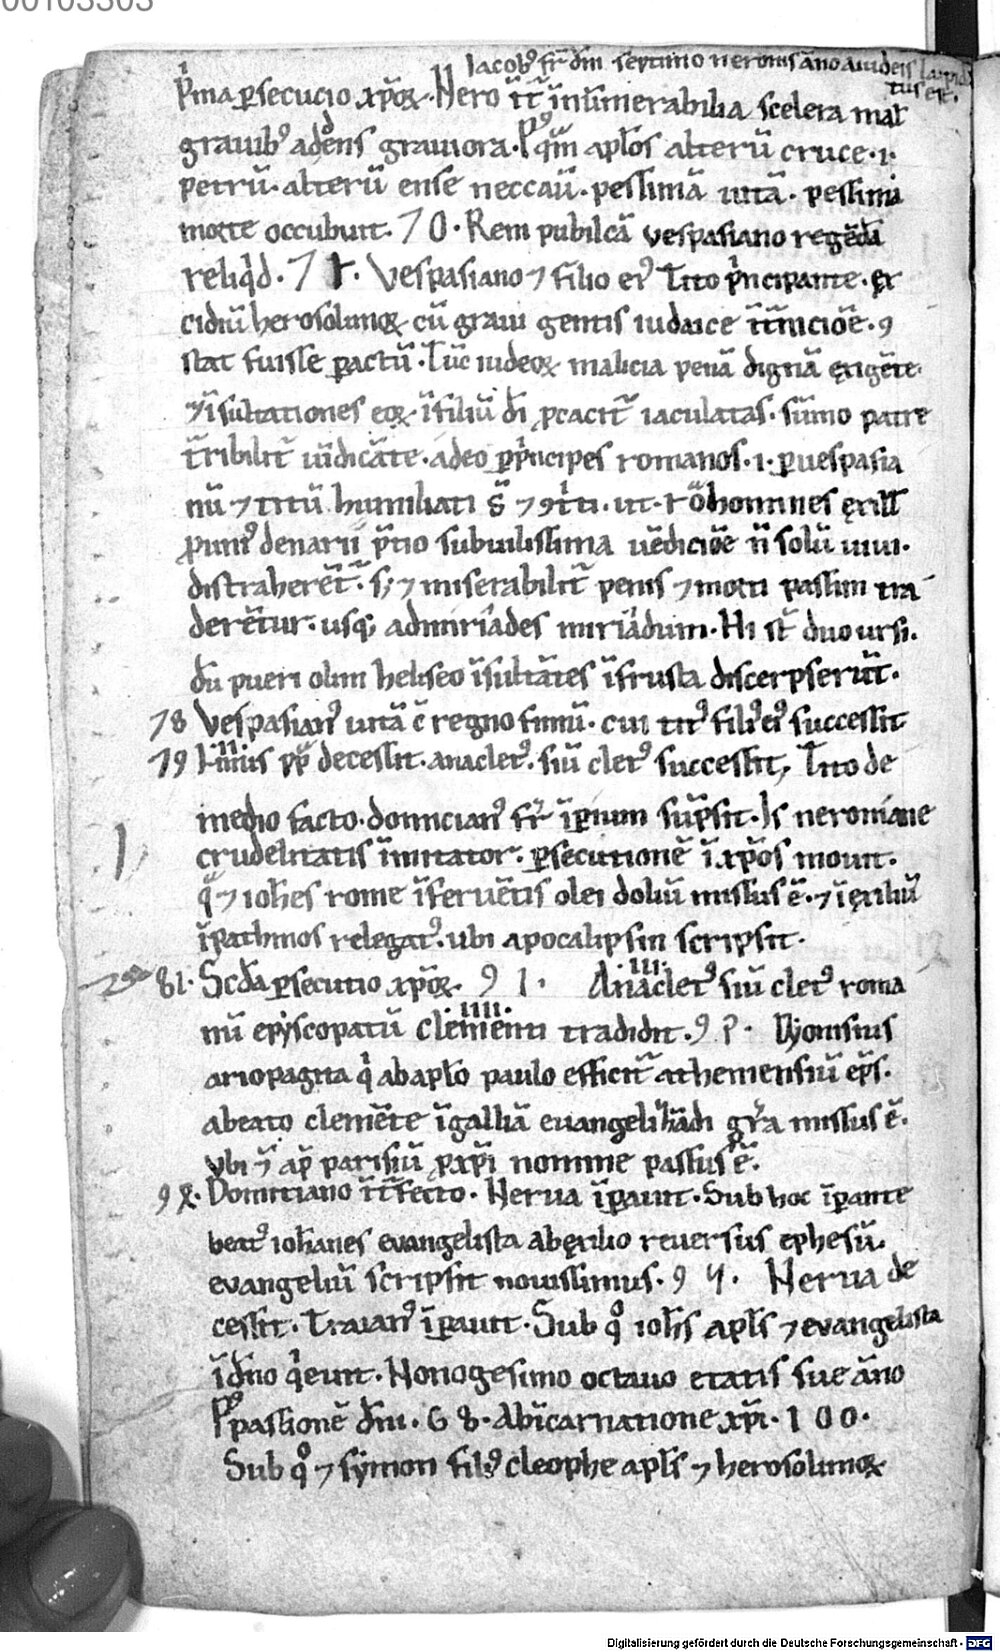 00103303
Jacobꝰ fr̄ dn̄i septimo neronis āno a iudeis lapida
tus est.
P̍ma ꝑsecucio xp̄oꝝ. Nero īt̄ īnūmerabilia scelera mał
grauibꝰ addens grauiora. Pꝰq̄m apłos alterū cruce .i.
petrū. alterū ense neccaū. pessimā uitā. pessima
morte occubuit. 70. Rem publicā vespasiano regēdā
reliq̍d. 71. Vespasiano ⁊ filio eiꝰ Tito p̍ncipante. ex
cidiū herosolimoꝝ cū graui gentis iudaice īt̄nicióē. ꝯ
stat fuisse ꝑactū. Tūc iudeoꝝ malicia penā dignā exigēte.
⁊ īsultationes eoꝝ ī filiū dī ꝓcacit̄ iaculatas. sūmo patre
t̄ribilit̄ uīdicāte. adeo ꝑ p̍ncipes romanos .i. ꝑ uespasia
nū ⁊ titū humiliati s̄ ⁊ ꝯt̍ti. ut. homines
ꝓ uniꝰ denarii p̄tio subuilissima uēdicióē n̄ solū uiui.
distraherēt̄. sꝫ ⁊ miserabilit̄ penis ⁊ morti passim tra
derētur. usqꝫ ad miríades miríadum. Hi st̄ duo ursi.
dū pueri olim heliseo īsultātes ī frusta discerpserūt̄.
78 Vespasianꝰ uitā c̄ regno finiū. cui titꝰ filiꝰ eiꝰ successit
79 Linus pp̄ decessit. anacletꝰ. siū cletꝰ successit, Tito de
medio facto. domicianꝰ fr̄ īꝑium sūpsit. Is neroniane
crudelitatis īmitator. ꝑsecutionē ī xp̄os mouit.
q̍ ⁊ ioh̄es rome ī feruētis olei doliū missus ē. ⁊ ī exiliū
ī pathmos relegatꝰ. ubi apocalipsin scripsit.
81. Sc̄da ꝑsecutio xp̄oꝝ. 91. .III. Anacletꝰ siū cletꝰ roma
nū episcopatū .IIII. clementi tradidit. 92. Dyonisius
ariopagita q̍ ab apło paulo efficit̄ atheniensiū ep̄s.
a beato clemēte ī galliā euangelizādi gr̄a missus ē.
Vbi ⁊ ap̄ parisiū ꝓ xp̄i nomine passus ē.
Domitiano īt̄fecto. Nerua īꝑauit. Sub hoc īꝑante
beatꝰ iohānes evangelista ab exilio reuersus ephesū.
evangeliū scripsit nouissimus. Nerua de
cessit. Traianꝰ īꝑauit. Sub qͦ ioh̄s apłs ⁊ evangelista
ī dn̄o q̍euit. Nonogesimo octauo etatis sue āno
Pꝰ passionē dn̄i. 68. Ab īcarnatione xp̄i. 100.
Sub qͦ ⁊ symon filiꝰ cleophe apłs ⁊ herosolimoꝝ
Digitalisierung gefördert durch die Deutsche Forschungsgemeinschaft - DFG